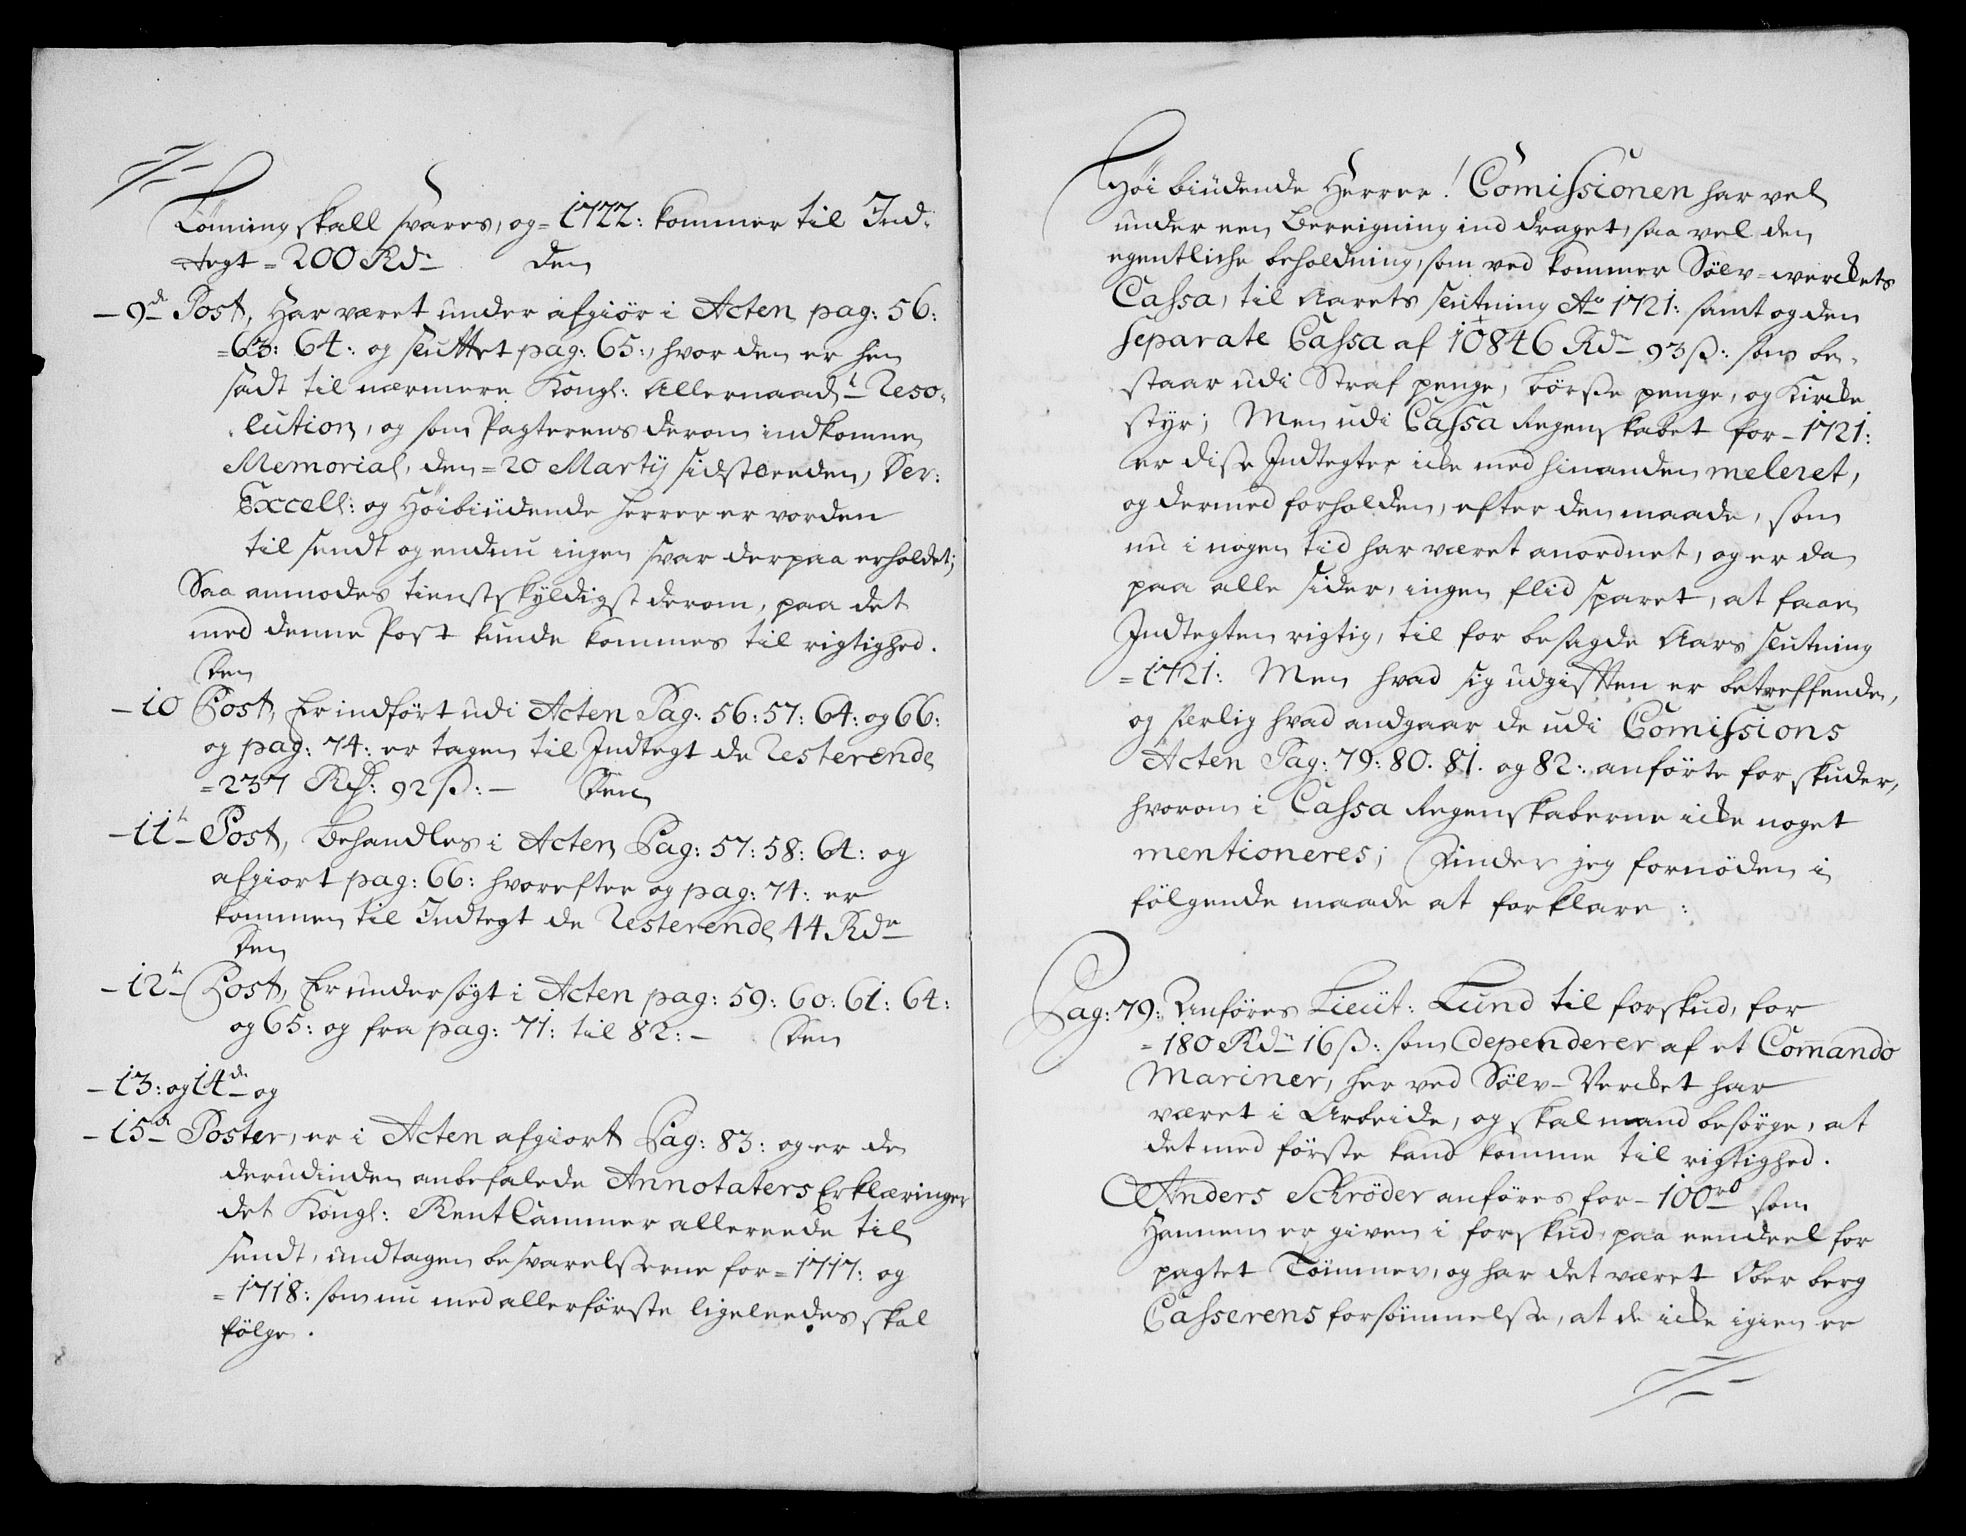 Lönning skall svares, og = 1722: kommer til Ind-
tegt = 200 Rdr den
- 9de Post, Har været under afgiør i Acten pag: 56:
= 63: 64: og sluttet pag: 65:, hvor den er hen
sadt til nærmere Kongl: Allernaadt Reso-
lution, og som Pagterens derom indkomne
Memorial, den = 20 Martij sidstleeden, Der:
Excell: og Höibiüdende Herrer er vorden
til sendt og endnu ingen svar derpaa erholdet;
Saa anmodes tienstskyldigst derom, paa det
med denne Post kunde kommes til rigtighed.
Den
- 10 Post, Er indført udi Acten Pag: 56: 57: 64: og 66:
og pag: 74: er tagen til Indtegt de Resterende
= 237 Rd: 92 ß: - Den
- 11te Post, Behandles i Acten Pag: 57: 58: 64: og
afgiort pag: 66: hvorefter og pag: 74: er
kommen til Indtegt de Resterende 44 Rdr
Den
- 12te Post, Er undersøgt i Acten pag: 59: 60: 61: 64:
og 65: og fra pag: 71: til 82: - Den
- 13: og 14de og
- 15de Poster, er i Acten afgiort Pag: 83: og er de
derudinden anbefalede Annotaters Erklæringer
det Kongl: Rent Cammer allereede til
sendt, undtagen besvarelsserne for = 1717: og
= 1718: som nu med allerførste ligeleedes skal
følge.
Höi biüdende Herrer! Comissionen har vel
under een Bereigning ind draget, saa vel den
egentliche beholdning, som ved kommer Sölv-werckets
Cassa, til Aarets slutning Ao 1721: samt og den
separate Cassa af 10846 Rdr 93 ß: som be-
staar udi Straf penge, Börse penge, og Kircke
styr; Men udi Cassa Regenskabet for - 1721:
er disse Indtegter icke med hinanden meleret,
og dermed forholden, efter den maade, som
nu i nogen tid har været anordnet, og er da
paa alle sider, ingen flid sparet, at faae
Indtegten rigtig, til for besagde Aars slutning
= 1721: Men hvad sig udgifften er betreffende,
og særlig hvad andgaar de udi Comissions
Acten Pag: 79: 80. 81. og 82: anförte forskuder,
hvorom i Cassa Regenskaberne icke noget
mentioneres; Finder jeg fornöden i
fölgende maade at forklare:
Pag: 79: Anföres Lieüt: Lund til forskud, for
= 180 Rdr 16 ß: som dependerer af et Comando
Mariner, her ved Sölv-Vercket har
været i Arbeide, og skal mand besörge, at
det med förste kand komme til rigtighed.
Anders Schrøder anföres for - 100 rd som
Hannem er given i forskud, paa eendeel for
pagtet Tömmer, og har det været Ober berg
Casserens forsömmelsse, at de icke igien er